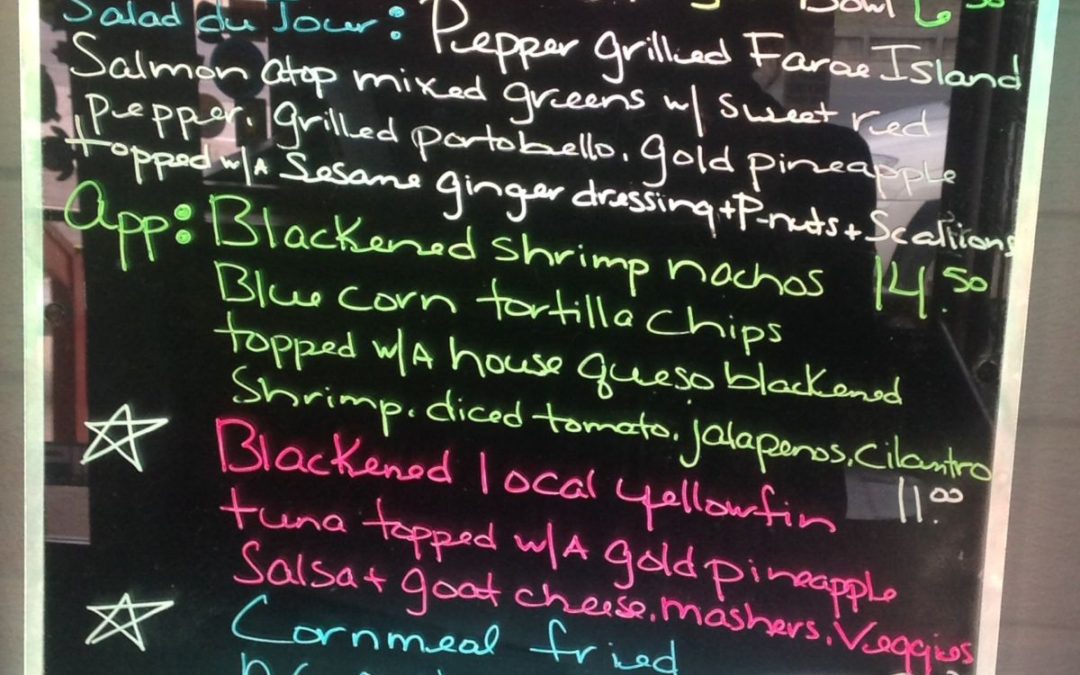 Bowl 6.50
Salad du Jour: Pepper grilled Farae Island
Salmon atop mixed greens w/ sweet red
pepper, grilled portobello, gold pineapple
topped w/A Sesame ginger dressing + P-nuts + Scallions
App: Blackened shrimp nachos 14.50
Blue corn tortilla chips
topped w/A house queso blackened
Shrimp, diced tomato, jalapenos, cilantro
Blackened local yellowfin 11.00
tuna topped w/A gold pineapple
Salsa + goat cheese, mashers, Veggies
Cornmeal fried